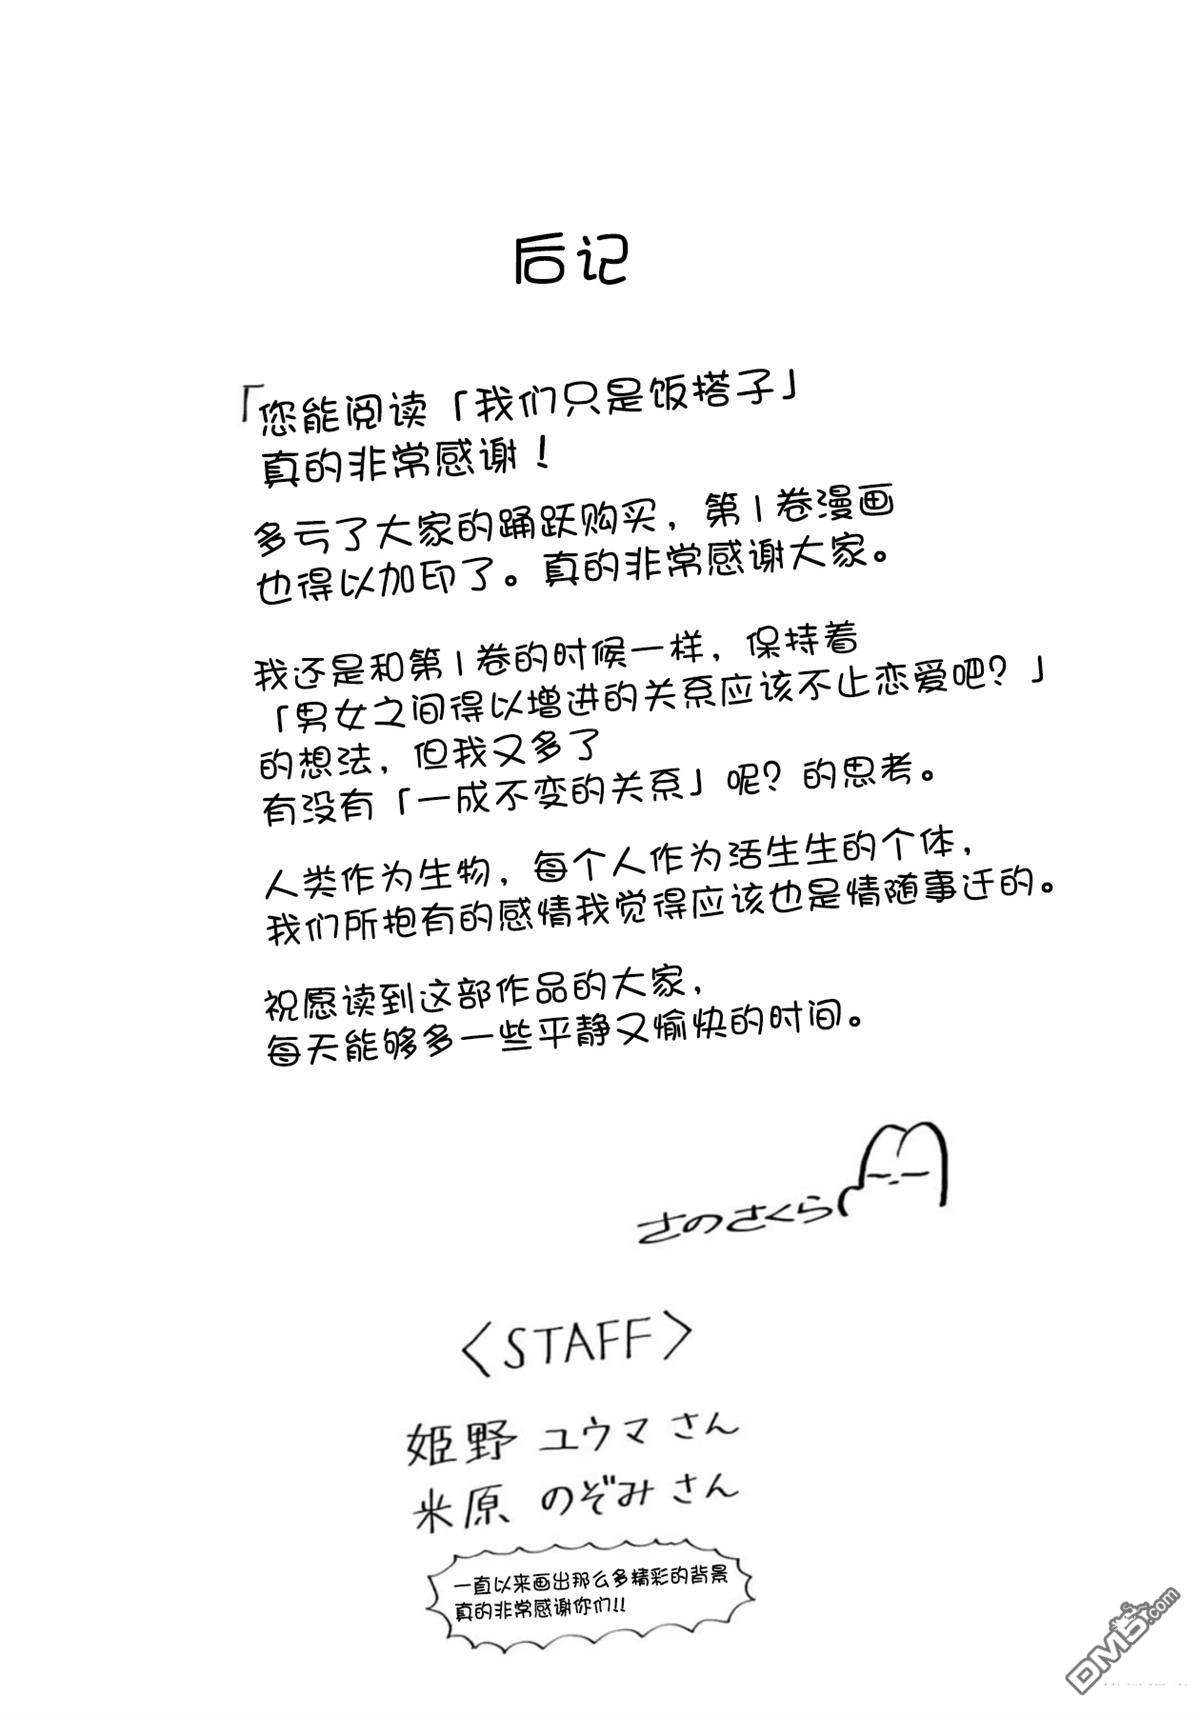 后记
「您能阅读「我们只是饭搭子」
真的非常感谢！
多亏了大家的踊跃购买，第1卷漫画
也得以加印了。真的非常感谢大家。
我还是和第1卷的时候一样，保持着
「男女之间得以增进的关系应该不止恋爱吧？」
的想法，但我又多了
有没有「一成不变的关系」呢？的思考。
人类作为生物，每个人作为活生生的个体，
我们所抱有的感情我觉得应该也是情随事迁的。
祝愿读到这部作品的大家，
每天能够多一些平静又愉快的时间。
さのさくら
〈STAFF〉
姫野 ユウマ さん
米原 のぞみ さん
一直以来画出那么多精彩的背景
真的非常感谢你们!!
DM5.com